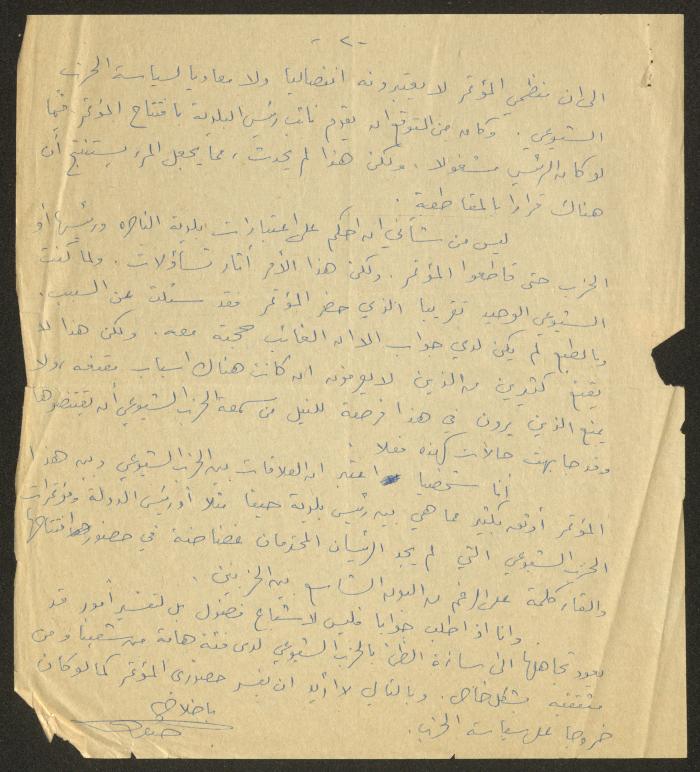 -٢-
الى ان منظمي المؤتمر لا يعتبرونه انفصاليا ولا معاديا لسياسة الحزب
الشيوعي. وكان من المتوقع ان يقوم نائب رئيس البلدية بافتتاح المؤتمر فيما
لو كان الرئيس مشغولا. ولكن هذا لم يحدث، مما يجعل المرء يستنتج أن
هناك قرارا بالمقاطعة.
ليس من شأني ان احكم على اعتبارات بلدية الناصره ورئيسها أو
الحزب حتى قاطعوا المؤتمر. ولكن هذا الأمر أثار تساؤلات. ولما كنت
الشيوعي الوحيد تقريبا الذي حضر المؤتمر فقد سئلت عن السبب.
وبالطبع لم يكن لدي جواب الا ان الغائب حجته معه. ولكن هذا لا
يقنع كثيرين من الذين لا يعرفون ان كانت هناك اسباب مقنعه، ولا
يمنع الذين يرون في هذا فرصة للنيل من سمعة الحزب الشيوعي أن يقتنصوها
وقد جابهت حالات كهذه فعلا.
أنا شخصيا اعتقد ان العلاقات بين الحزب الشيوعي وبين هذا
المؤتمر أوثق بكثير مما هي بين رئيس بلدية حيفا مثلا أو رئيس الدولة ومؤتمرات
الحزب الشيوعي التي لم يجد الرئيسان المحترمان غضاضة في حضور افتتاحها
والقاء كلمة على الرغم من البون الشاسع بين الحزبين.
وانا اذ اطلب جوابا فليس لاشباع فضول بل لتفسير أمور قد
يعود تجاهلها الى اساءة الظن بالحزب الشيوعي لدى فئة هامة من شعبنا ومن
مثقفيه بشكل خاص. وبالتالي لا أريد ان يفسر حضوري المؤتمر كما لو كان
خروجا على سياسة الحزب.
باخلاص